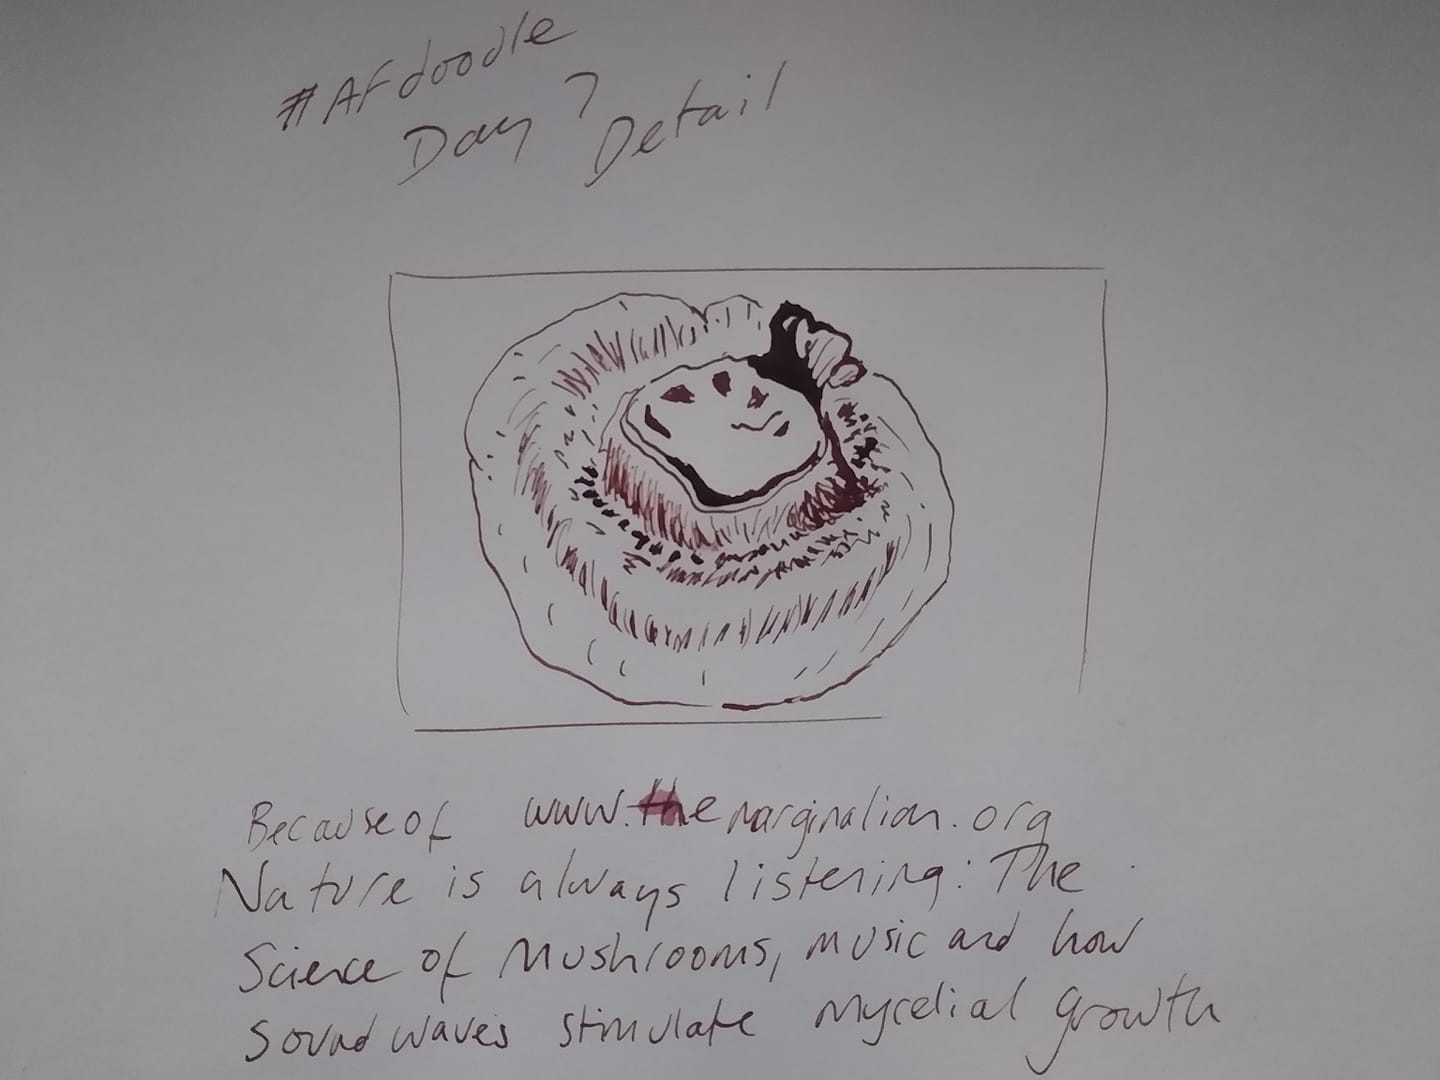 #AFdoodle
Day 7 Detail
Because of www.themarginalian.org
Nature is always listening: The
Science of Mushrooms, music and how
sound waves stimulate mycelial growth